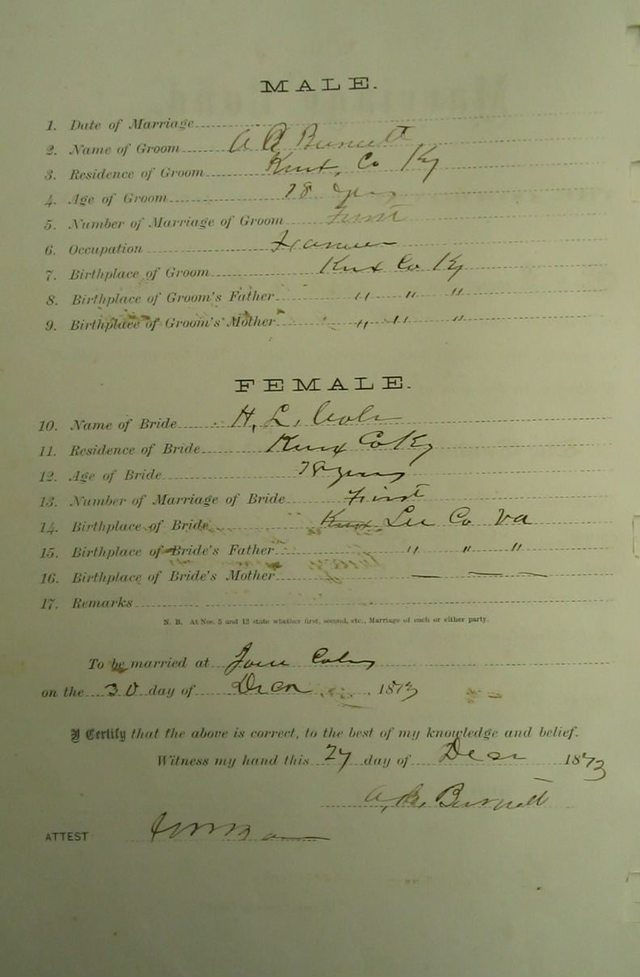 MALE.
1. Date of Marriage
2. Name of Groom A B Burnett
3. Residence of Groom Knox, Co Ky
4. Age of Groom 18 yrs
5. Number of Marriage of Groom First
6. Occupation Farmer
7. Birthplace of Groom Knox Co Ky
8. Birthplace of Groom's Father " " "
9. Birthplace of Groom's Mother " " "
FEMALE.
10. Name of Bride H. L. Cole
11. Residence of Bride Knox Co Ky
12. Age of Bride 18 years
13. Number of Marriage of Bride First
14. Birthplace of Bride Knox Lee Co Va
15. Birthplace of Bride's Father " " "
16. Birthplace of Bride's Mother — — —
17. Remarks
N. B. At Nos. 5 and 13 state whether first, second, etc., Marriage of each or either party.
To be married at Coles
on the 30 day of Decm 1873
I Certify that the above is correct, to the best of my knowledge and belief.
Witness my hand this 27 day of Dec 1873
A. B. Burnett
ATTEST